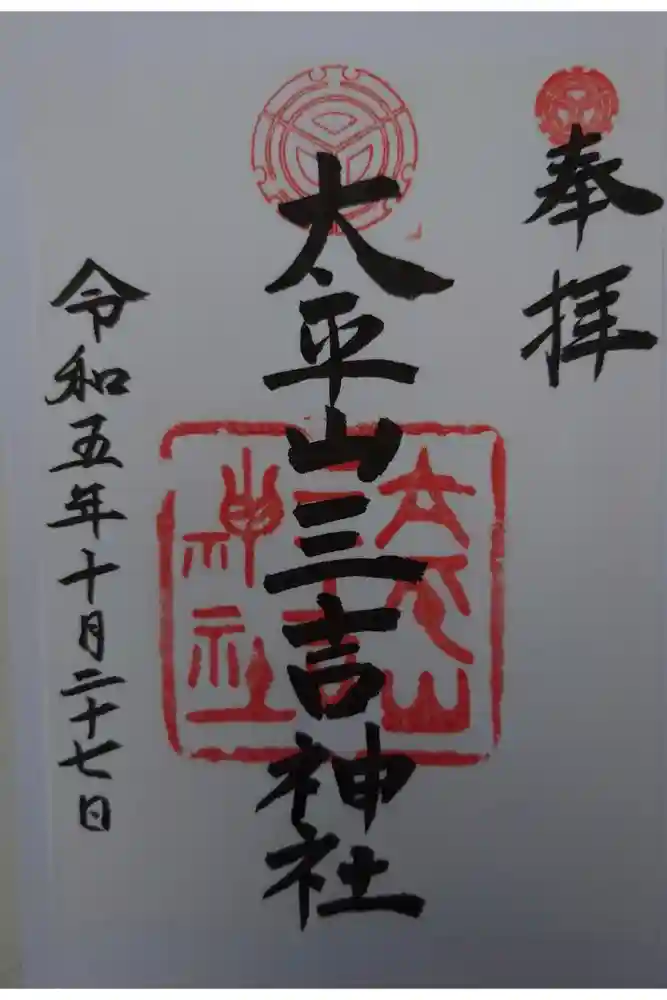 奉拝
太平山三吉神社
太平山
三吉
神社
令和五年十月二十七日